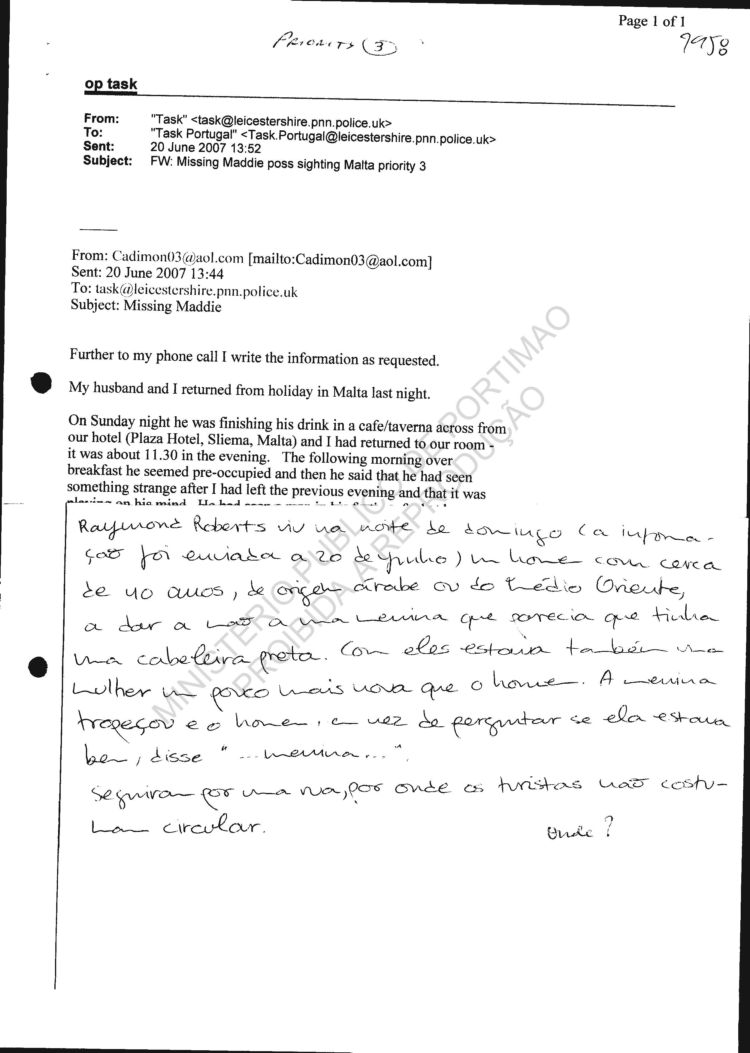 Page 1 of 1
PRIORITY (3)
9958
op task
From: "Task" <task@leicestershire.pnn.police.uk>
To: "Task Portugal" <Task.Portugal@leicestershire.pnn.police.uk>
Sent: 20 June 2007 13:52
Subject: FW: Missing Maddie poss sighting Malta priority 3
From: Cadimon03@aol.com [mailto:Cadimon03@aol.com]
Sent: 20 June 2007 13:44
To: task@leicestershire.pnn.police.uk
Subject: Missing Maddie
Further to my phone call I write the information as requested.
My husband and I returned from holiday in Malta last night.
On Sunday night he was finishing his drink in a cafe/taverna across from
our hotel (Plaza Hotel, Sliema, Malta) and I had returned to our room -
it was about 11.30 in the evening. The following morning over
breakfast he seemed pre-occupied and then he said that he had seen
something strange after I had left the previous evening and that it was
playing on his mind. He had seen a man in his
Raymond Roberts viu na noite de domingo (a informa-
ção foi enviada a 20 de Junho) um home com cerca
de 40 anos, de origem árabe ou do Médio Oriente,
a dar a mão a uma menina que parecia que tinha
uma cabeleira preta. Com eles estava também uma
mulher um pouco mais nova que o home. A menina
tropeçou e o home, em vez de perguntar se ela estava
bem, disse "...menina...".
Seguiram por uma rua, por onde os turistas não costu-
mam circular.
Onde?
MINISTÉRIO PUBLICO DE PORTIMAO
PROIBIDA A REPRODUÇÃO